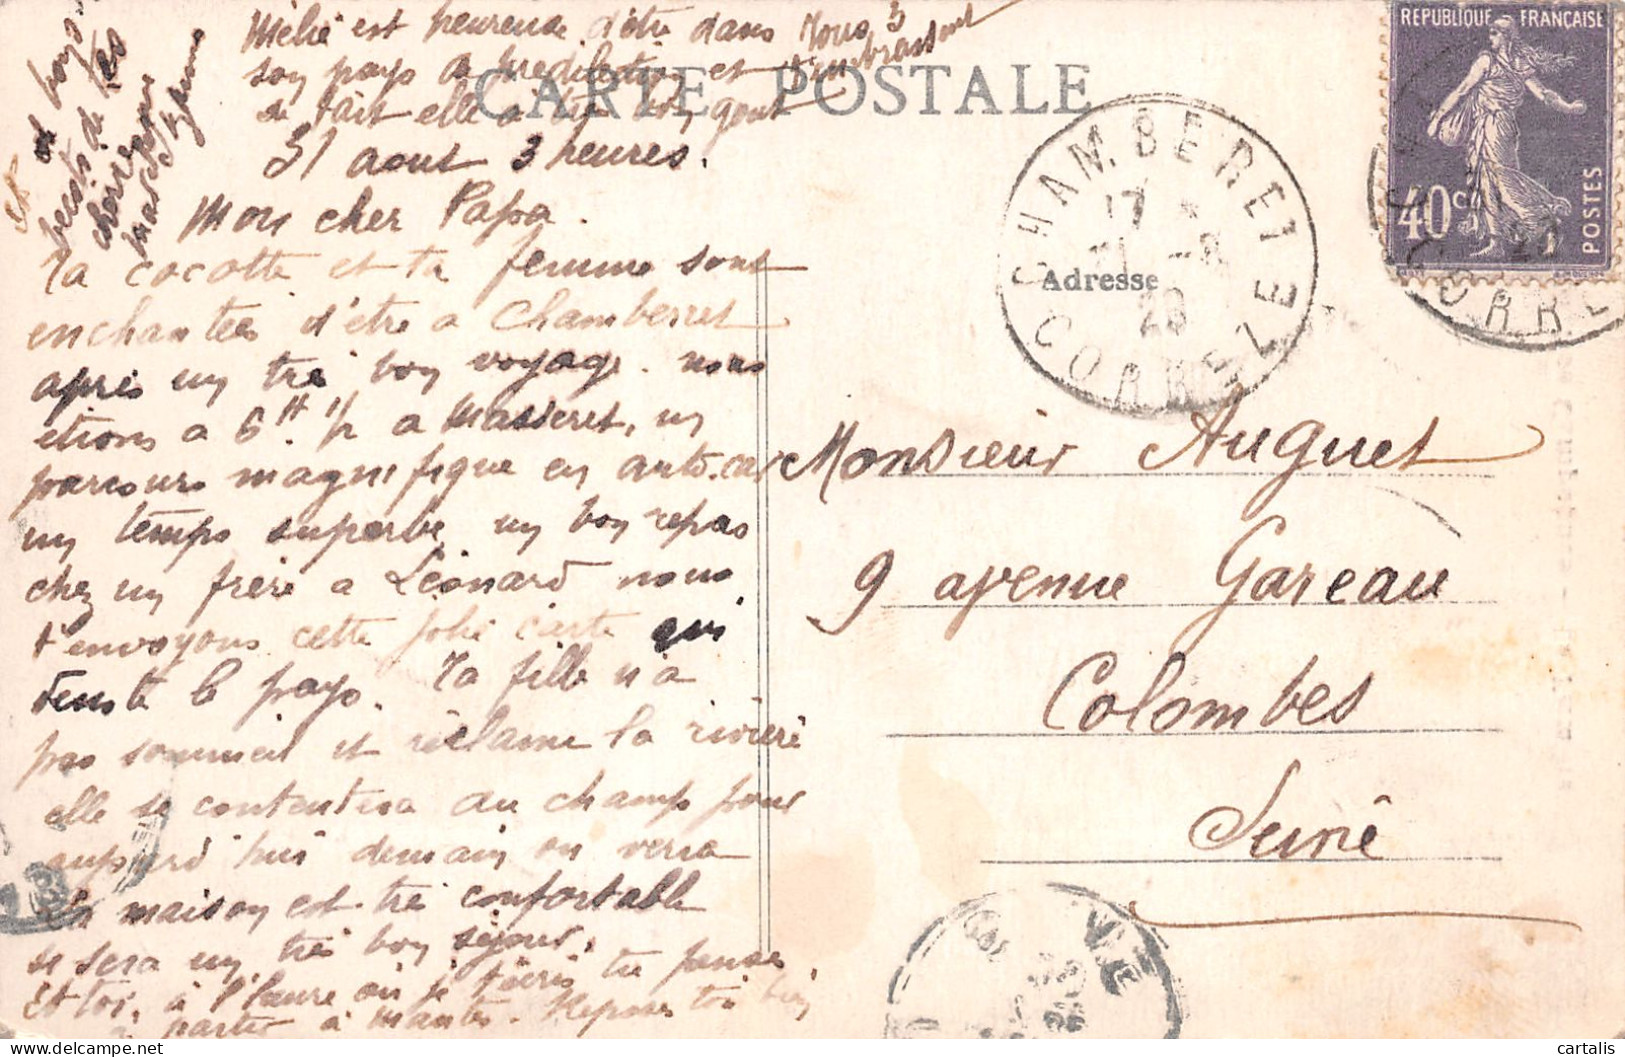 Mélie est heureuse d'être dans
son pays a predilection et
se fait elle a du bon gout
Nous 3
t'embrassent
CARTE POSTALE
31 aout 3 heures.
Mon cher Papa.
Ta cocotte et ta femme sont
enchantées d'être a Chamberret
après un tré bon voyage. nous
etions a 6H 1/2 a Masseret, un
parcours magnifique en auto-car
un temps superbe, un bon repas
chez un frère a Léonard nous
t'envoyons cette jolie carte qui
le pays. Ta fille n'a
pas sommeil et réclame la rivière
elle se contentera du champ pour
aujourd'hui demain on verra
la maison est tré confortable
se sera un tré bon séjour,
Et toi, à l'heure où je t'écris tu penses
à partir à Mantes. Repose toi bien
et
baisers de tes
chéries
REPUBLIQUE FRANÇAISE
40c
POSTES
CHAMBERET
17
20
CORREZE
CORRE
Adresse
Monsieur Auguet
9 avenue Gareau
Colombes
Seine
cartalis